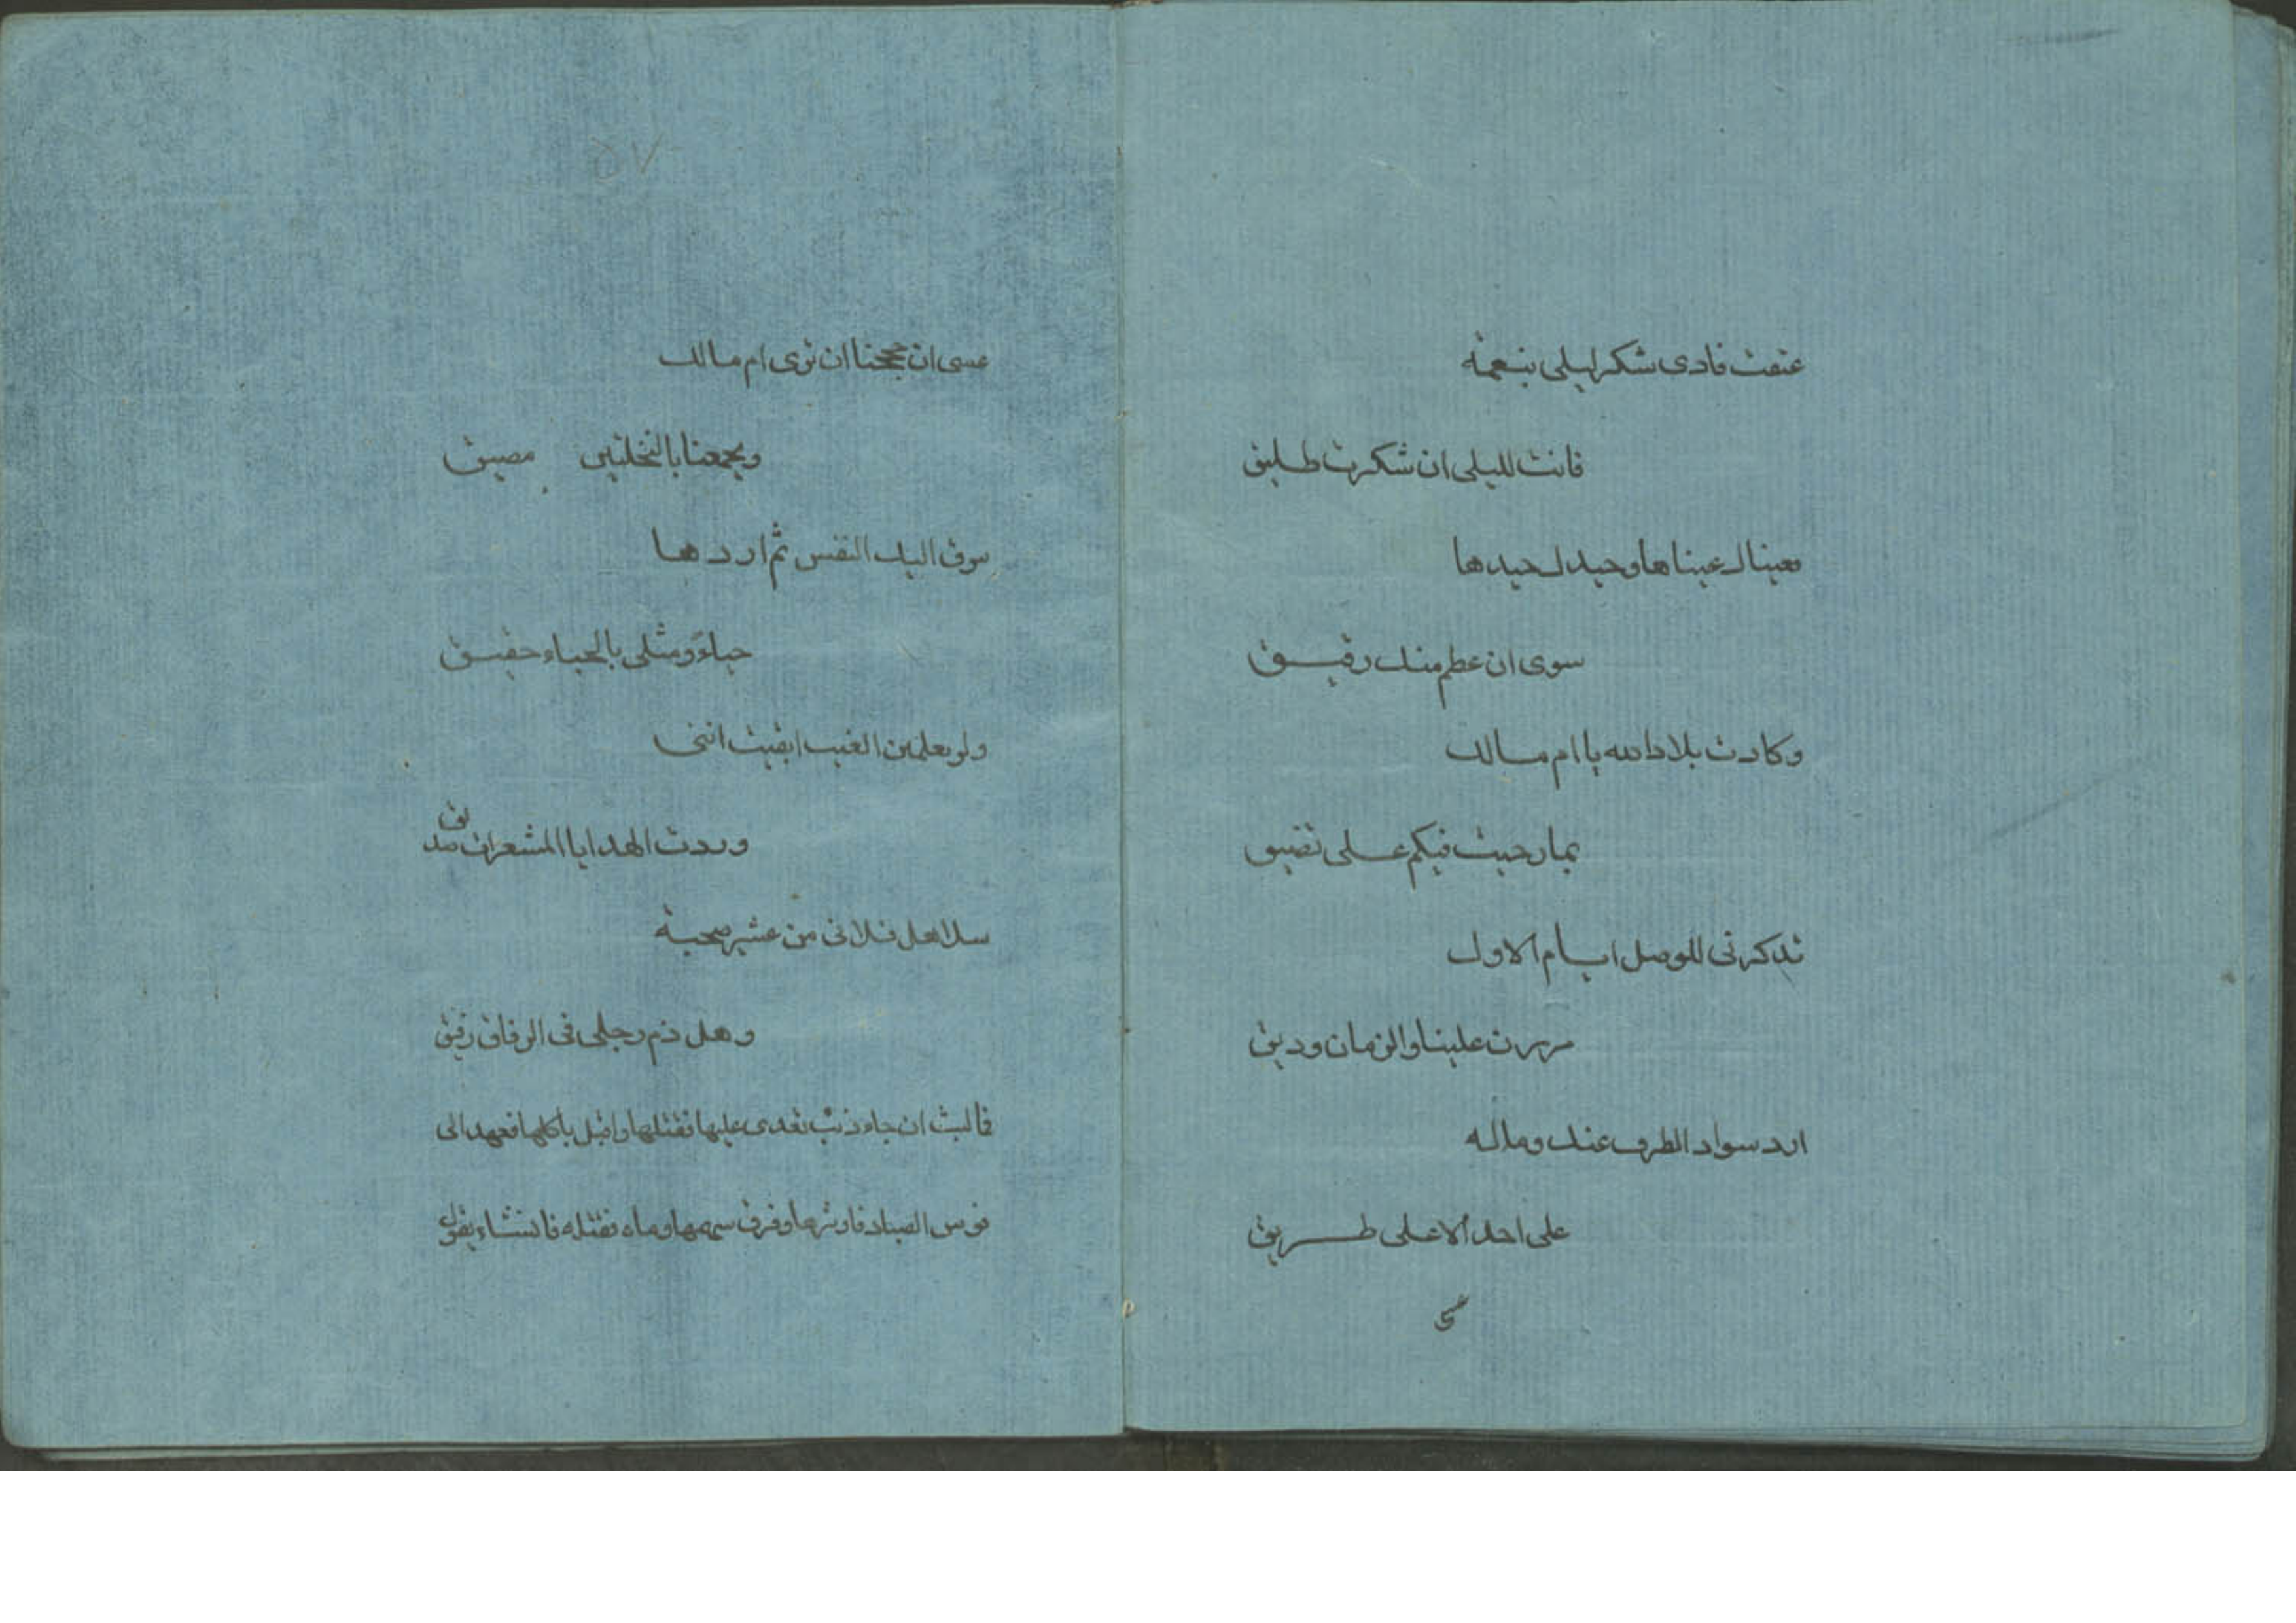 عتقت فادى شكر ليلى بنعمة
فانت لليلى ان شكرت طليق
فعيناك عيناها وجيدك جيدها
سوى ان عظم منك رقيق
وكادت بلاد الله يا ام مالك
بما رحبت فيكم على تضيق
تذكرنى للوصل ايام الاول
مررن علينا والزمان وديق
ارد سواد الطرف عنك وماله
على احد الا على طريق
عسى
٥٧
عسى ان حججنا ان نرى ام مالك
ويجمعنا بالنخلتين مضيق
سوق اليك النفس ثم اردها
حياءً ومثلى بالحياء حقيق
ولو تعلمين الغيب ايقنت اننى
وردت الهدايا المشعرات صديق
سلا هل قلانى من عشير صحبة
وهل ذم رحلى فى الرفاق رفيق
فما لبث ان جاء ذئب تعدى عليها فقتلها واقبل ياكلها فعهد الى
قوس الصياد فاوترها وفرق سهمها ورماه فقتله فانشاء يقول